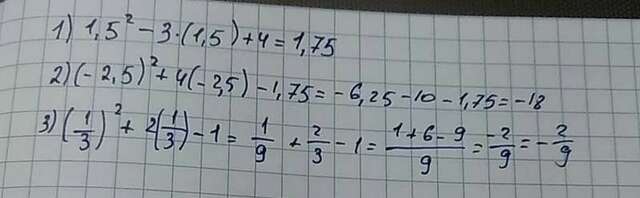 1) 1,5² - 3·(1,5) + 4 = 1,75
2) (-2,5)² + 4(-2,5) - 1,75 = -6,25 - 10 - 1,75 = -18
3) (1/3)² + 2(1/3) - 1 = 1/9 + 2/3 - 1 = (1+6-9)/9 = -2/9 = -2/9